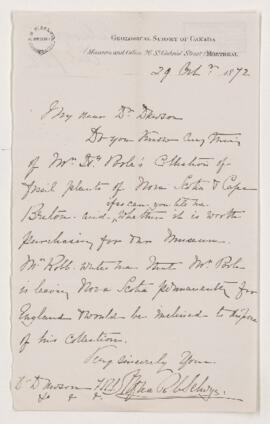 GEOLOGICAL SURVEY OF CANADA
(Museum and Office, 76, St. Gabriel Street) MONTREAL
29 Octr. 1872
My dear Dr Dawson
Do you know any thing
of Mr Hy Poole's Collection of
fossil plants of Nova Scotia & Cape
if so can you tell me
Breton and whether it is worth
purchasing for our Museum.
Mr Robb writes me that Mr Poole
is leaving Nova Scotia permanently for
England & would be inclined to dispose
of his collection.
Very sincerely Yours
Dr Dawson
&c & &